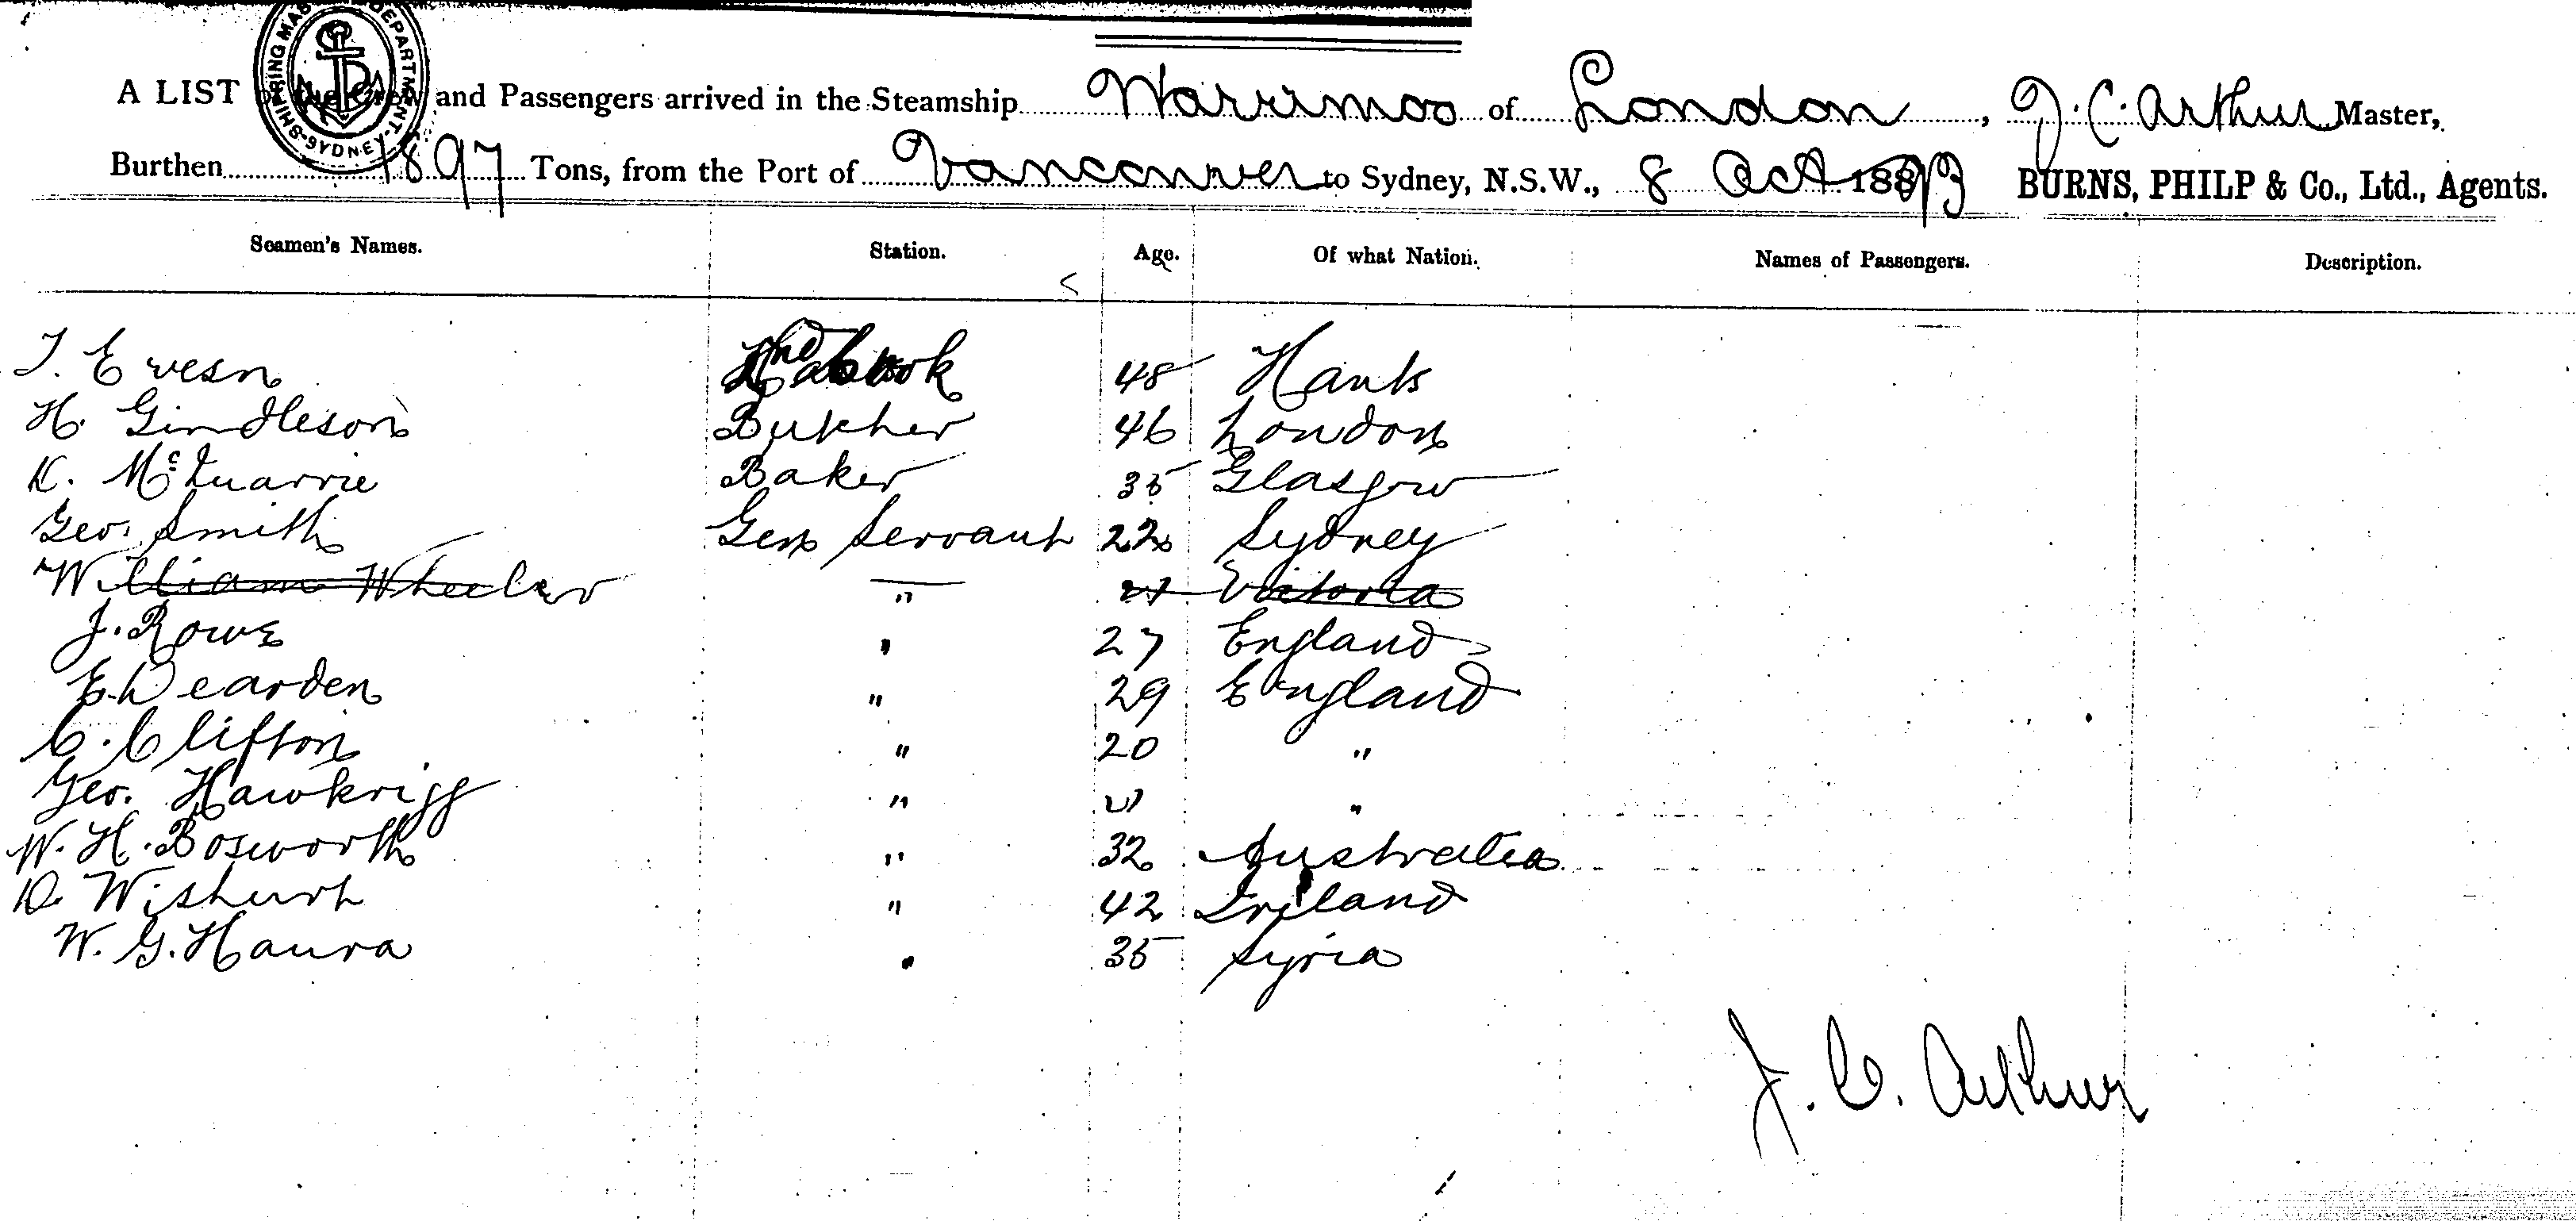 SHIPPING MASTER'S DEPARTMENT · SYDNEY
A LIST of the Crew and Passengers arrived in the Steamship Warrimoo of London, J. C. Arthur Master,
Burthen 1897 Tons, from the Port of Vancouver to Sydney, N.S.W., 8 Oct 1893 BURNS, PHILP & Co., Ltd., Agents.
Seamen's Names. Station. Age. Of what Nation. Names of Passengers. Description.
T. Evesn Cook 48 Hants
H. Gindleson Butcher 46 London
D. McQuarrie Baker 35 Glasgow
Geo. Smith Genl Servant 22 Sydney
William Wheeler " 21 Victoria
J. Rowe " 27 England
E. Dearden " 29 England
C. Clifton " 20 "
Geo. Hawkrigg " 21 "
W. H. Bosworth " 32 Australia
D. Wishart " 42 Ireland
W. G. Haura " 35 Syria
J. C. Arthur